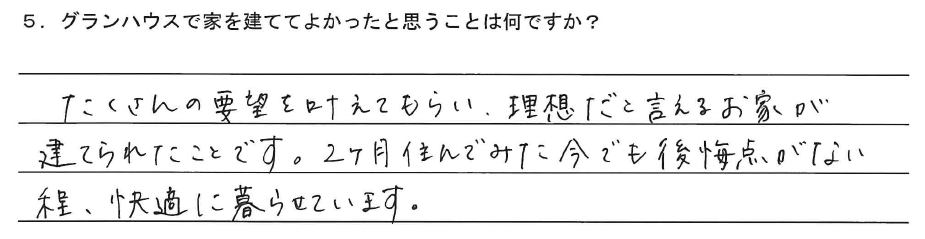 5．グランハウスで家を建ててよかったと思うことは何ですか？
たくさんの要望を叶えてもらい、理想だと言えるお家が
建てられたことです。2ヶ月住んでみた今でも後悔点がない
程、快適に暮らせています。